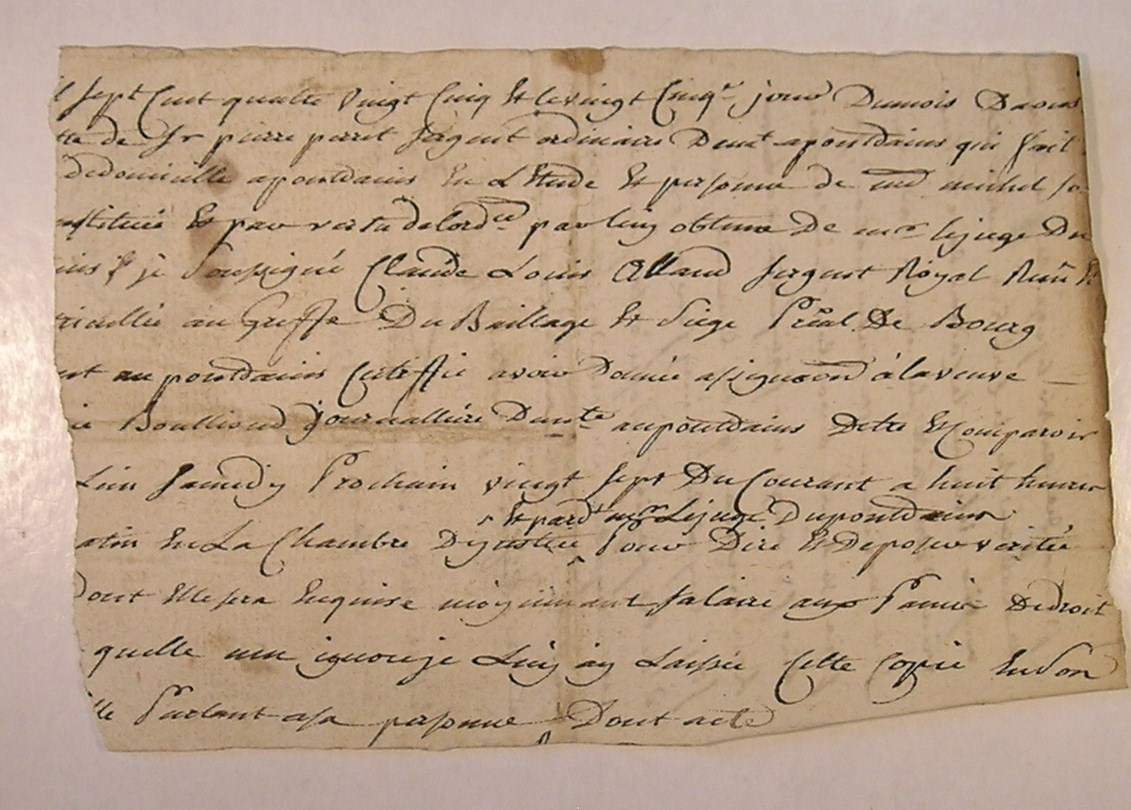 l sept Cent quatre vingt Cinq et le vingt Cinqe jour Dumois Daoust
tte de Sr pierre perret sergent ordinaire Demt apontdains qui fait
dedomicille apontdains En L Etude et personne de me michel
nstitué et par vertu delordce par luy obtenue De mr lejuge Du
ains je soussigné Claude Louis Alland sergent Royal
triculée au Greffe Du Baillage et Siege Préal De Bourg
nt au pontdains Certiffie avoir Donnée assignaon à la veuve
ie Boulliond journalliére Demte aupontdains Detre et Comparoir
Lun samedy Prochain vingt sept Du Courant a huit heures
et pardt mr Lejuge Dupontdains
atin En La Chambre Dejustice Pour Dire et Deposer verité
Dont Elle sera Enquise moyennant salaire aux Peines Dedroit
quelle nen ignore je Luy ay Laissée Cette Copie En son
lle Parlant asa personne Dont acte